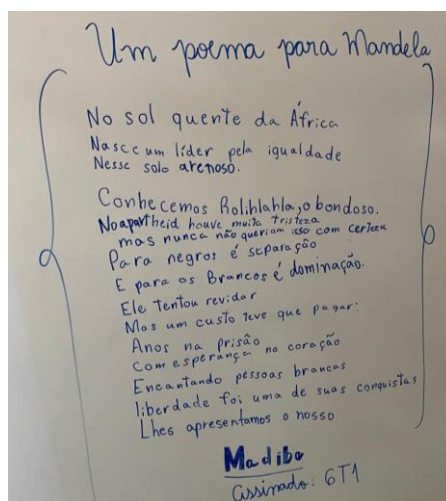 Um poema para Mandela
No sol quente da África
Nasce um líder pela igualdade
Nesse solo arenoso.
Conhecemos Rolihlahla, o bondoso.
No apartheid houve muita tristeza
mas nunca não queriam isso com certeza
Para negros é separação
E para os Brancos é dominação.
Ele tentou revidar
Mas um custo teve que pagar:
Anos na prisão
Com esperança no coração
Encantando pessoas brancas
liberdade foi uma de suas conquistas
Lhes apresentamos o nosso
Madiba
Assinado: 6T1